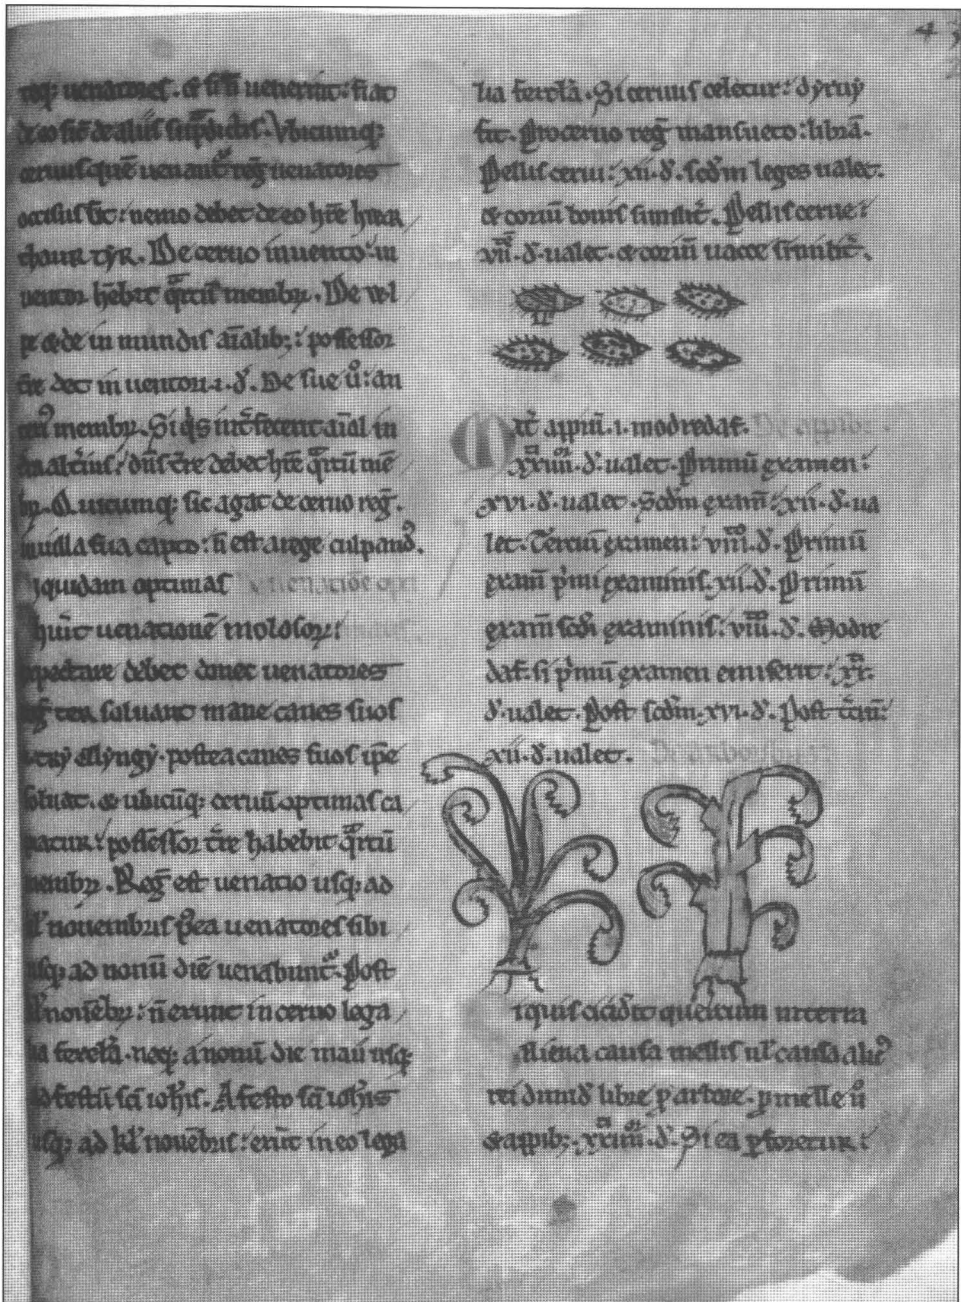 uenatores. & si ñ uenerint: fiat
de eo sic̄ de aliis. Vbicumq;
ceruus quē uenant᷑ reḡ uenatores
occisus sit: nemo debet de eo hr̄e hyer
chaur tẏr. De ceruo inuento: in
uentor hēbit qͣrtū membrʒ. De uul
pe & de in mundis aīalibʒ: possessor
tr̄e det in uentori .i. đ. De sue ů: an
membrʒ. Si qͥs int̄fecerit aīal in
dn̄s tr̄e debet hr̄e qͣrtū mē
brʒ. Quicumq; sic agat de ceruo reḡ.
in uilla sua capto: ñ est a rege culpandꝰ.
Siquidam optimas De uenatiōe opti
huīt uenationē molosorʒ:
expectare debet donec uenatores
ter soluant mane canes suos
ellẏngẏ. postea canes suos ip̄e
soluat. & ubicūq; ceruū optimas ca
piatur: possessor tr̄e habebit qͣrtū
membrʒ. Reḡ est uenatio usq; ad
kl̄ nouembris pͦea uenatores sibi
usq; ad nonū diē uenabunt᷑. Post
kl̄ nouēbrʒ: ñ erunt in ceruo lega
lia fercl̄a. neq; a nonū die maii usq;
ad festū sc̄i ioh̄is. A festo sc̄i ioh̄is
usq; ad kl̄ nouēbris: erūt in eo lega
4
lia fercl̄a. Si ceruus celetur: dẏruẏ
fit. Pro ceruo reḡ mansueto: librā.
Pellis cerui: xii. đ. scđm leges ualet.
& coriū bouis similit᷑. Pellis cerue:
viii. đ. ualet. & coriū uacce similit᷑.
Mat᷑ appiū .i. modredaf. De apibus.
xxiiii. đ. ualet. Primū examen:
xvi. đ. ualet. Scđm exam̄: xii. đ. ua
let. Terciū examen: viii. đ. Primū
exam̄ pͥmi examinis. xii. đ. Primū
exam̄ scđi examinis: viii. đ. Modre
daf. si pͥmū examen emiserit: xx.
đ. ualet. Post scđm. xvi. đ. Post t̄ciū:
xii. đ. ualet. De arboribus
Siquis ciciđit quercum in terra
aliena causa mellis ul̄ causa aliꝰ
rei dimiđ libre ꝑ arbore. ꝑ melle ů
& appibʒ. xxiiii. đ. Si ea ꝑforetur: